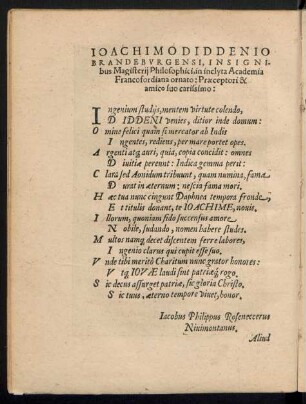 IOACHIMO DIDDENIO
BRANDEBVRGENSI, INSIGNI-
bus Magisterij Philosophici in inclyta Academia
Francofordiana ornato: Præceptori &
amico suo carissimo:
Ingenium studijs, mentem virtute colendo,
DIDDENI venies, ditior inde domum:
Omine felici quam si mercator ab Indis
Ingentes, rediens, per mare portet opes.
Argenti atq; auri, quia, copia concidit: omnes
Diuitiæ pereunt: Indica gemma perit:
Clara sed Aonidum tribuunt, quam numina, fama,
Durat in æternum; nescia fama mori.
Hæc tua nunc cingunt Daphnea tempora fronde
Et titulis donant, te IOACHIME, nouis,
Illorum, quoniam sido succensus amore
Nobile, sudando, nomen habere studes.
Multos namq; decet discentem ferre labores,
Ingenio clarus qui cupit esse suo.
Vnde tibi meritò Charitum nunc grator honores:
Vtq; IOVÆ laudi sint patriæq; rogo.
Sic decus assurget patriæ, sic gloria Christo,
Sic tuus, æterno tempore viuet, honor.
Iacobus Philippus Roseneccerus
Niuimontanus.
Aliud